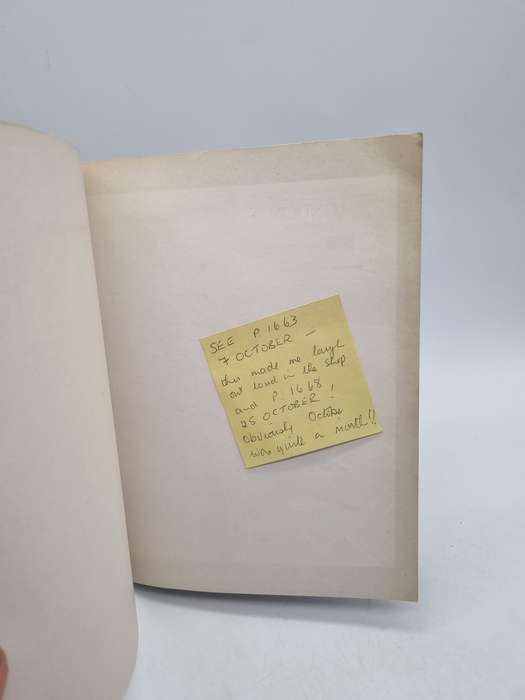 SEE P.1663
7 OCTOBER —
this made me laugh
out loud in the shop
and P.1668
25 OCTOBER!
Obviously October
was quite a month!!